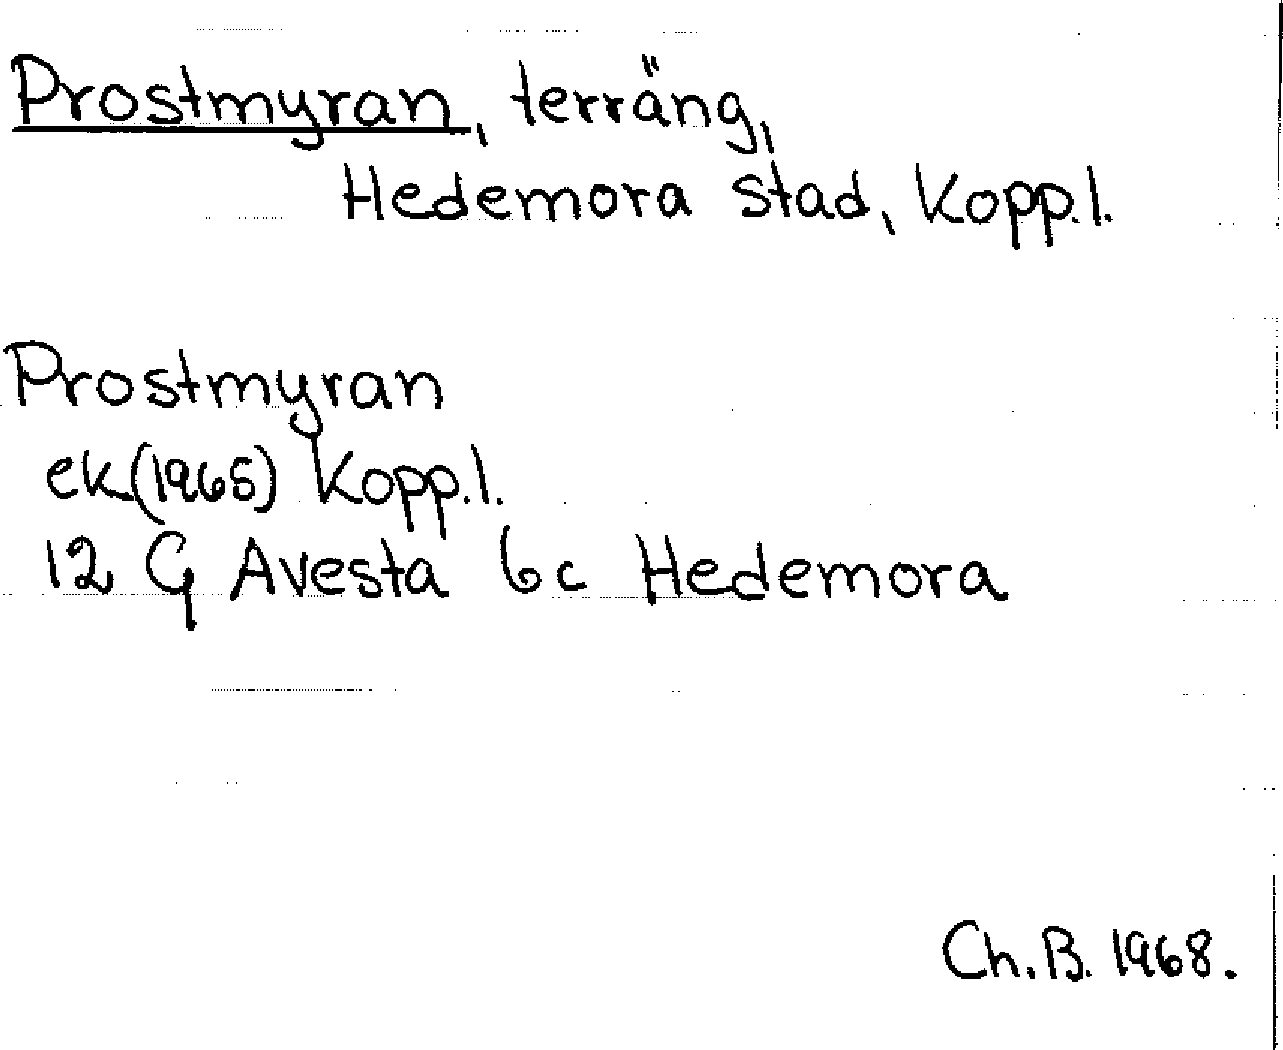 Prostmyran, terräng,
Hedemora stad, Kopp.l.
Prostmyran
ek (1965) Kopp.l.
12 G Avesta 6c Hedemora
Ch. B. 1968.